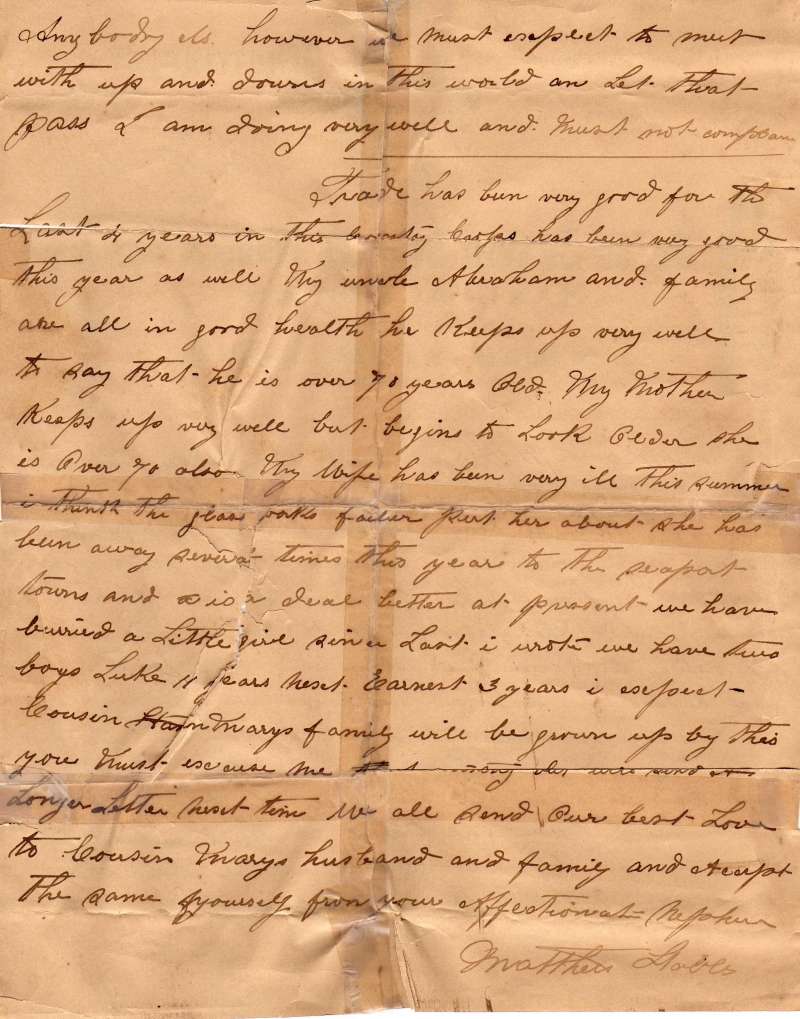 Any body els. however we must expect to meet
with up and downs in this world an Let that
pass I am doing very well and must not
Trade has bun very good for th
Last 4 years in this Country Crops has been very good
this year as well My uncle Abraham and family
are all in good health he Keeps up very well
to say that he is over 70 years Old. My Mother
Keeps up very well but begins to Look Older she
is Over 70 also My Wife has been very ill this summer
i think the glass works failier put her about she has
been away several times this year to the seaport
towns and is a deal better at present we have
burried a Little girl since Last i wrote we have two
boys Luke 11 years next Earnest 3 years i expect
Cousin Marys family will be grown up by this
you Must excuse me
Longer Letter next tim We all send Our best Love
to Cousin Marys husband and family and Accept
the same yourself from your Affectionat Nephew
Matthew